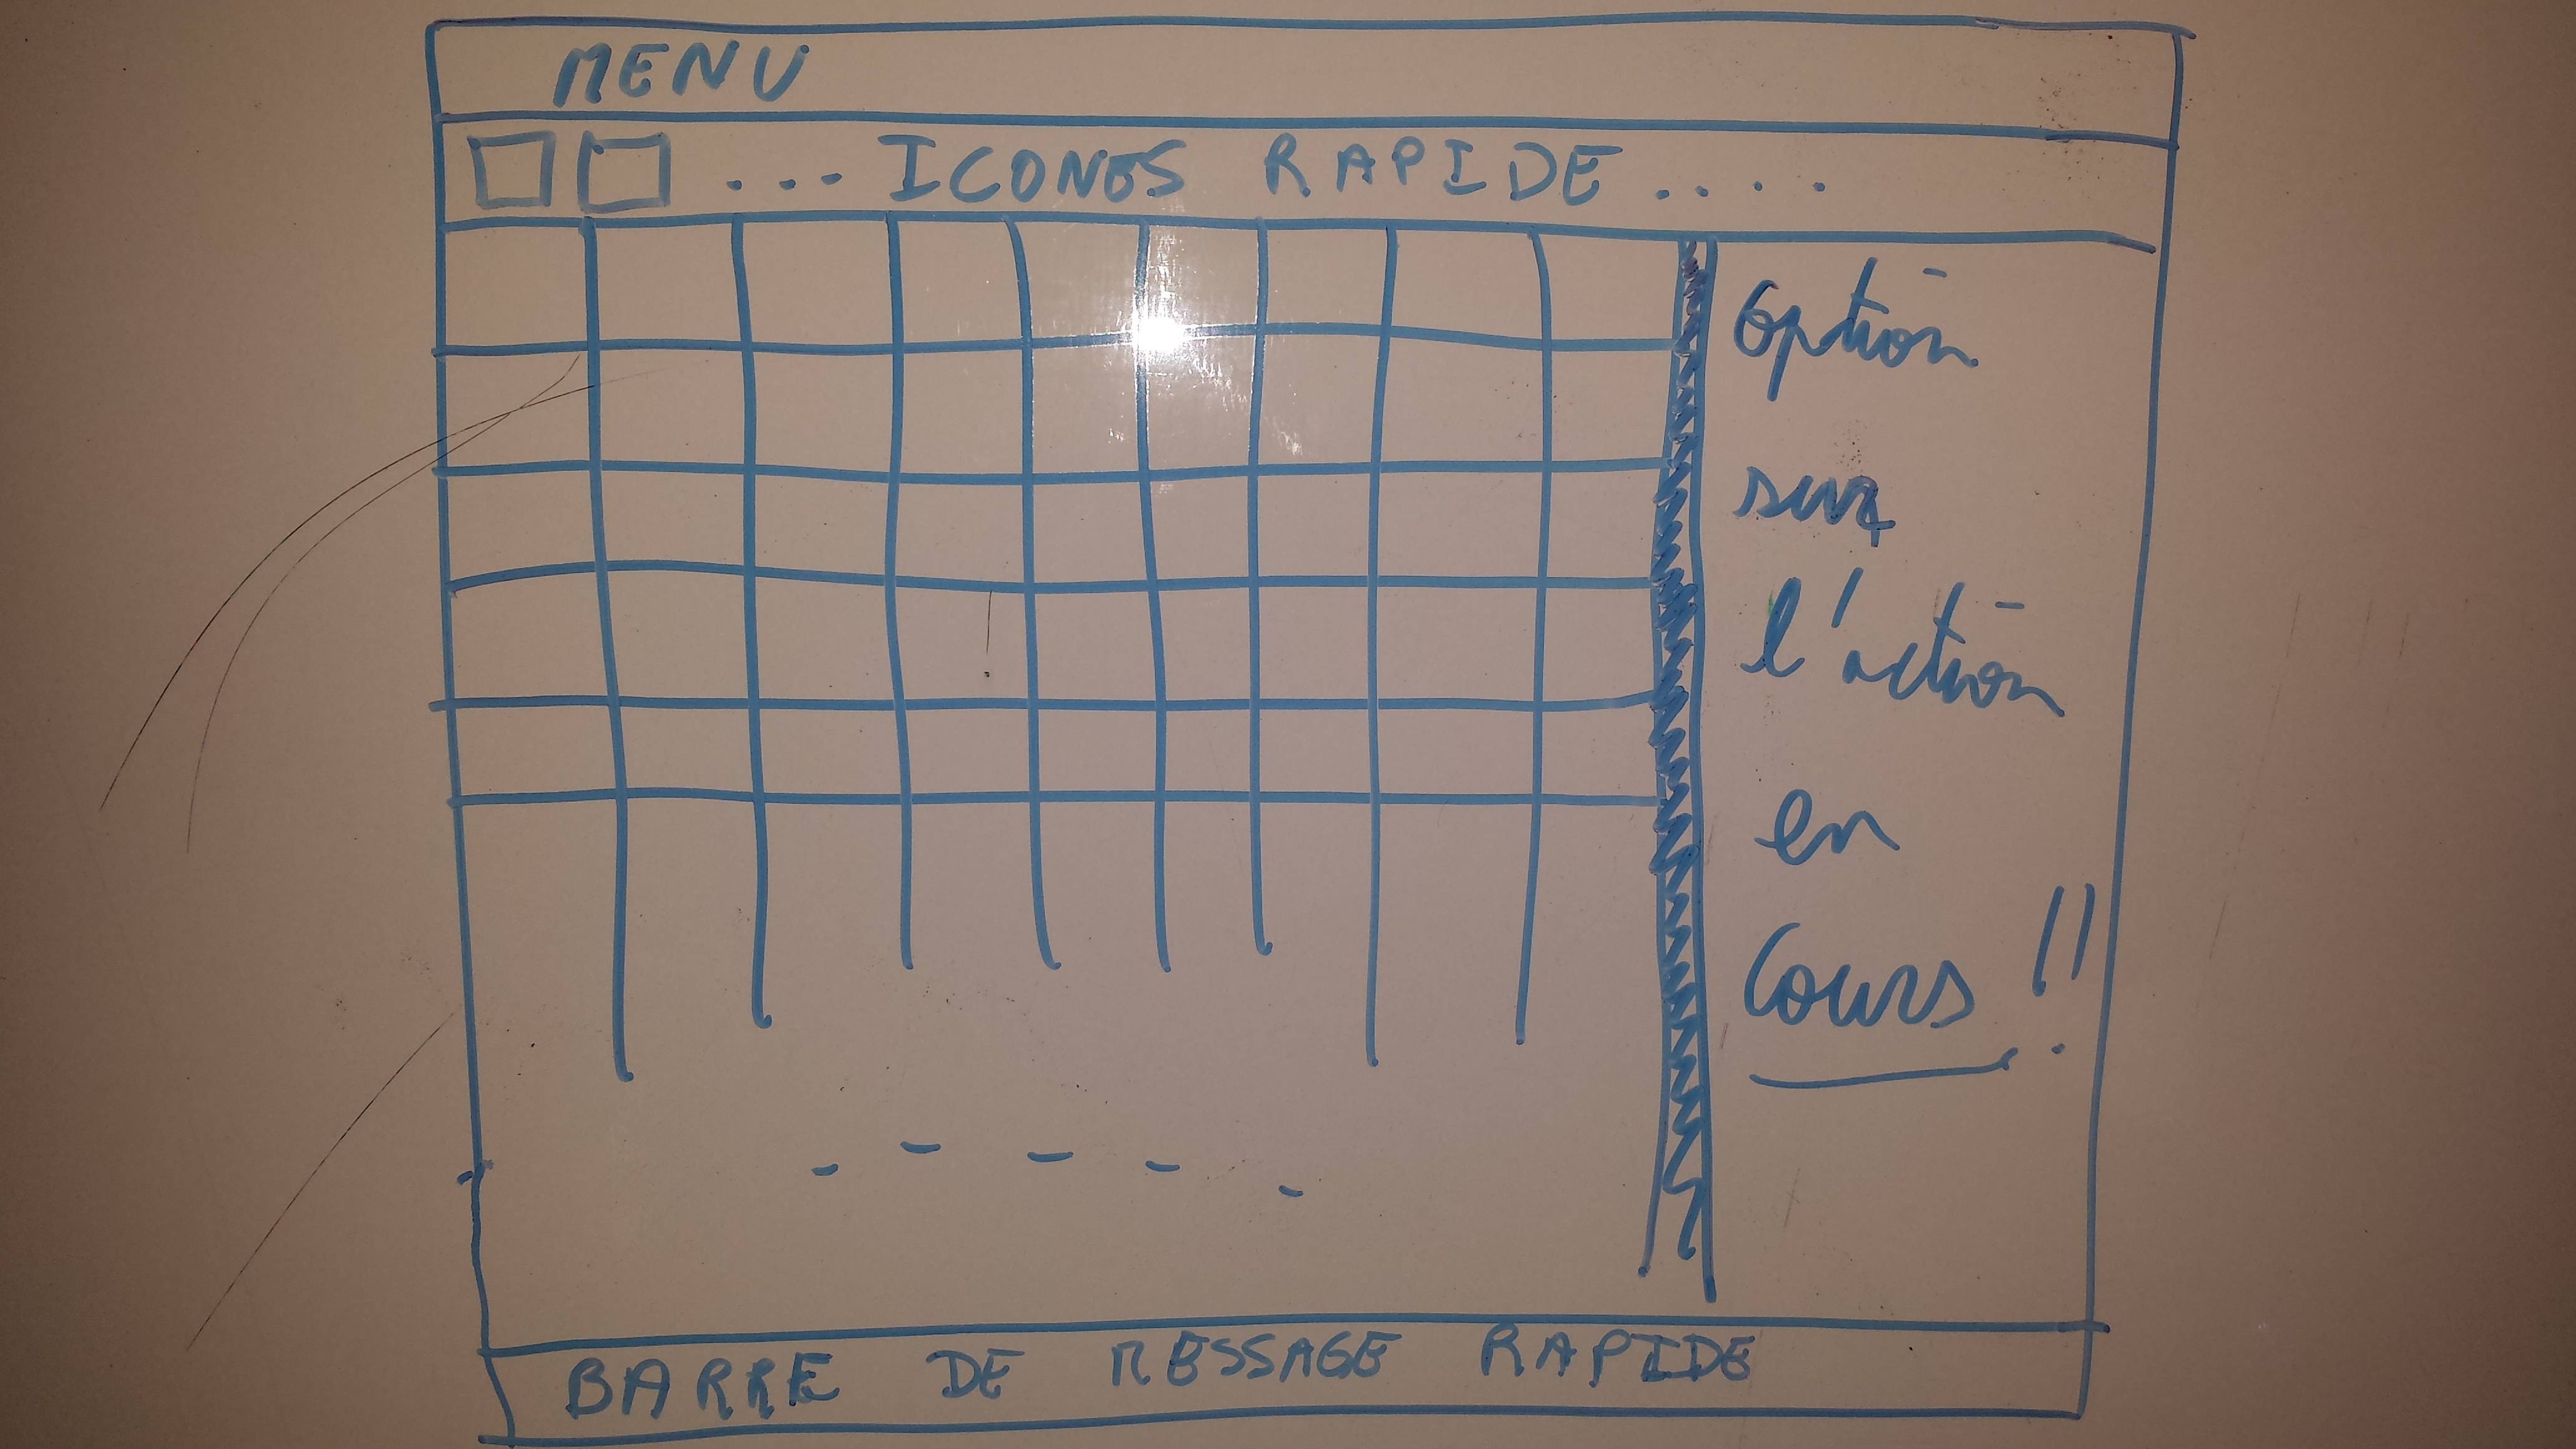 MENU
... ICONES RAPIDE ....
Option
sur
l'action
en
Cours !!
BARRE DE MESSAGE RAPIDE